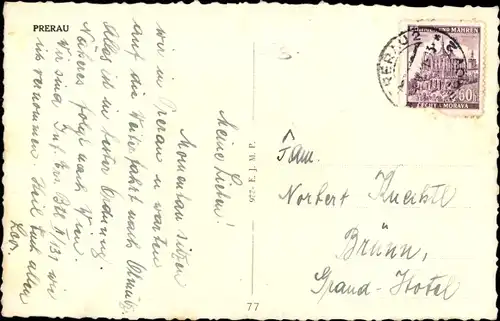 PRERAU
Meine Lieben!
Momentan sitzen
wir in Prerau u warten
auf die Weiterfahrt nach Olmütz.
Alles ist in bester Ordnung.
Näheres folgt nach Wien.
Wir sind wie
ich vernommen. Heil Euch allen
BÖHMEN UND MÄHREN
60
ČECHY A MORAVA
PRERAU 2
Fam.
Norbert Knechtl
Brünn,
Grand-Hotel
77